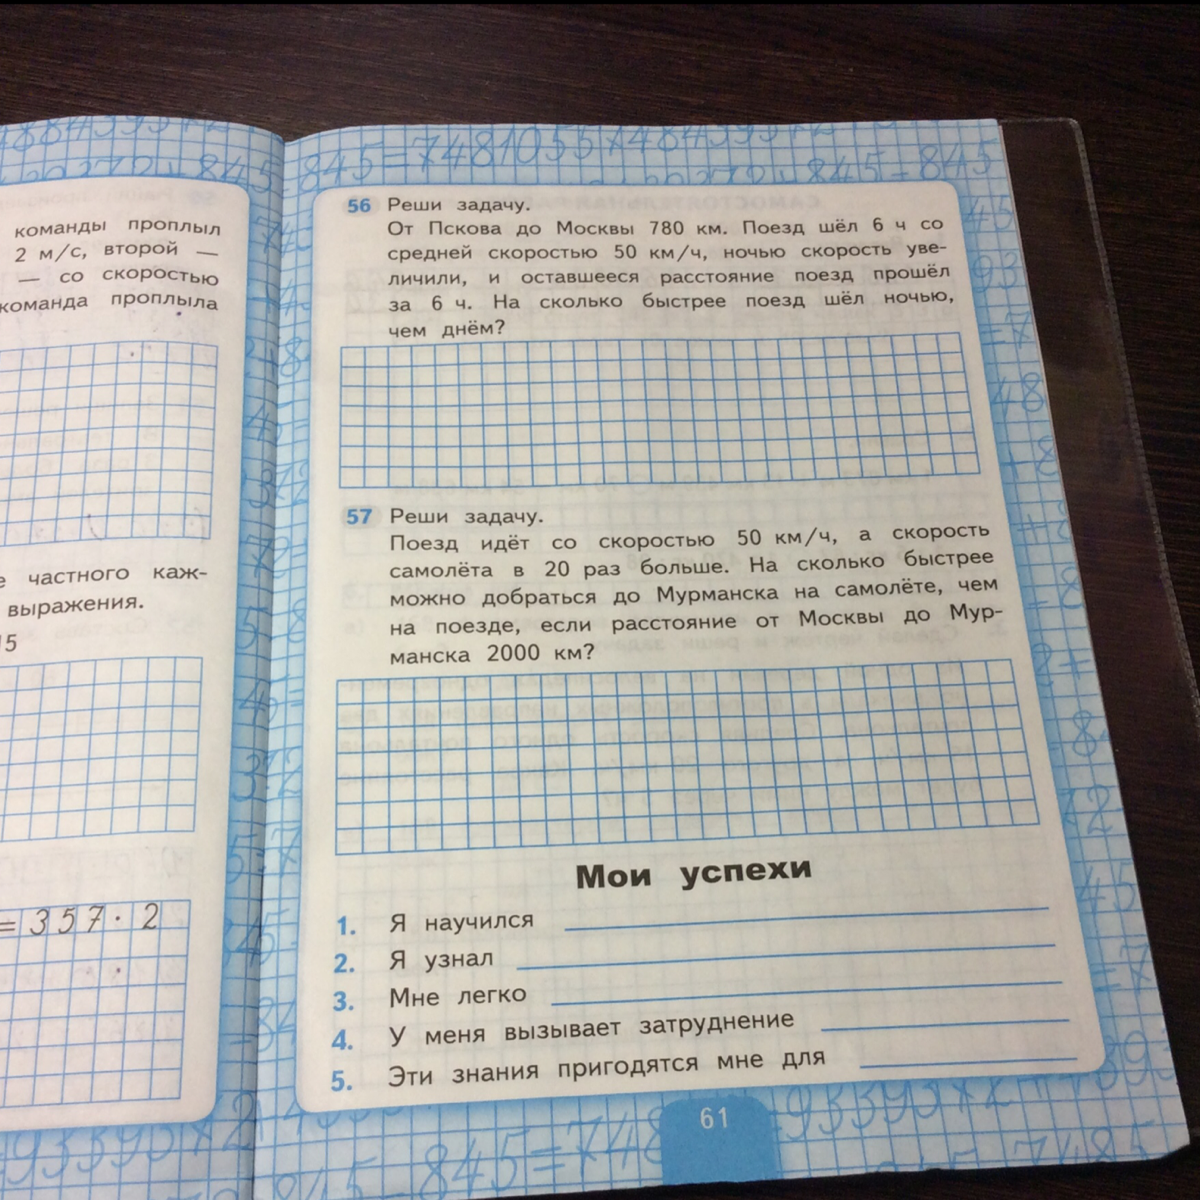 команды проплыл
2 м/с, второй —
— со скоростью
команда проплыла
частного каж-
выражения.
= 357 · 2
56 Реши задачу.
От Пскова до Москвы 780 км. Поезд шёл 6 ч со
средней скоростью 50 км/ч, ночью скорость уве-
личили, и оставшееся расстояние поезд прошёл
за 6 ч. На сколько быстрее поезд шёл ночью,
чем днём?
57 Реши задачу.
Поезд идёт со скоростью 50 км/ч, а скорость
самолёта в 20 раз больше. На сколько быстрее
можно добраться до Мурманска на самолёте, чем
на поезде, если расстояние от Москвы до Мур-
манска 2000 км?
Мои успехи
1. Я научился
2. Я узнал
3. Мне легко
4. У меня вызывает затруднение
5. Эти знания пригодятся мне для
61